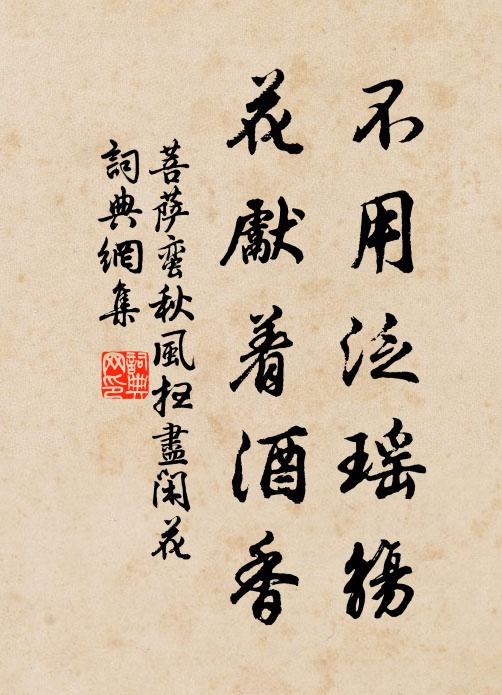 不用泛瑶觴
花獻着酒香
菩萨蛮秋風扫盡闲花
詞典網集
詞典网印